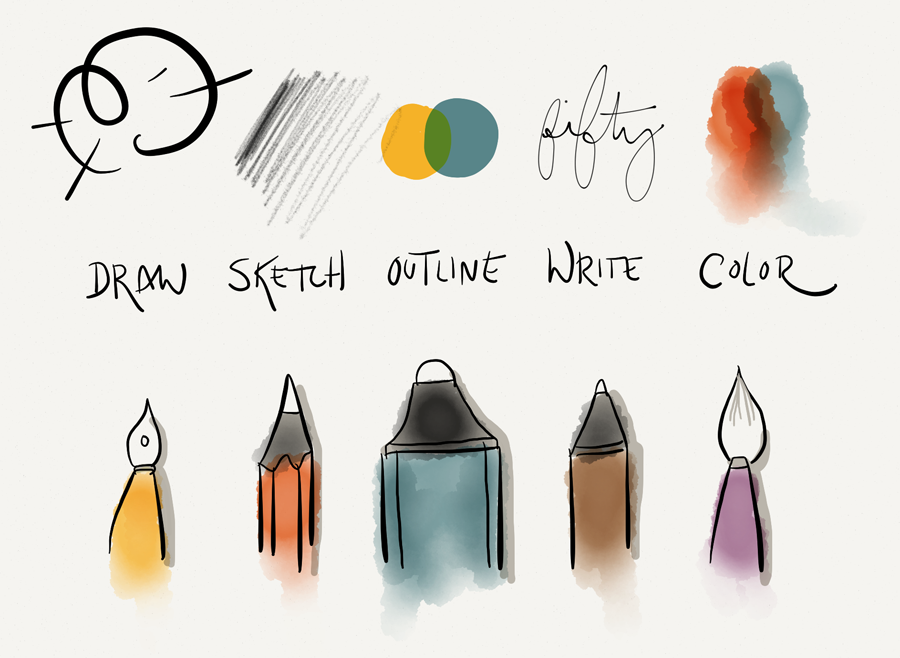 fifty
DRAW SKETCH OUTLINE WRITE COLOR